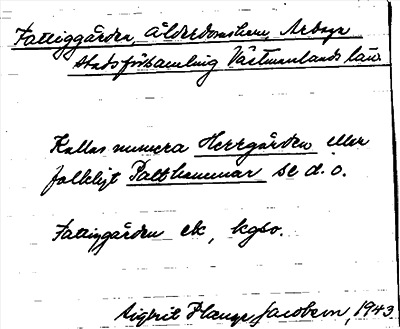 Fattiggården, ålderdomshem, Arboga
stadsförsamling Västmanlands län.
Kallas numera Herrgården eller
folkligt Palthammar se d. o.
Fattiggården ek, kgso.
Sigbrit Plange Jacobson, 1943